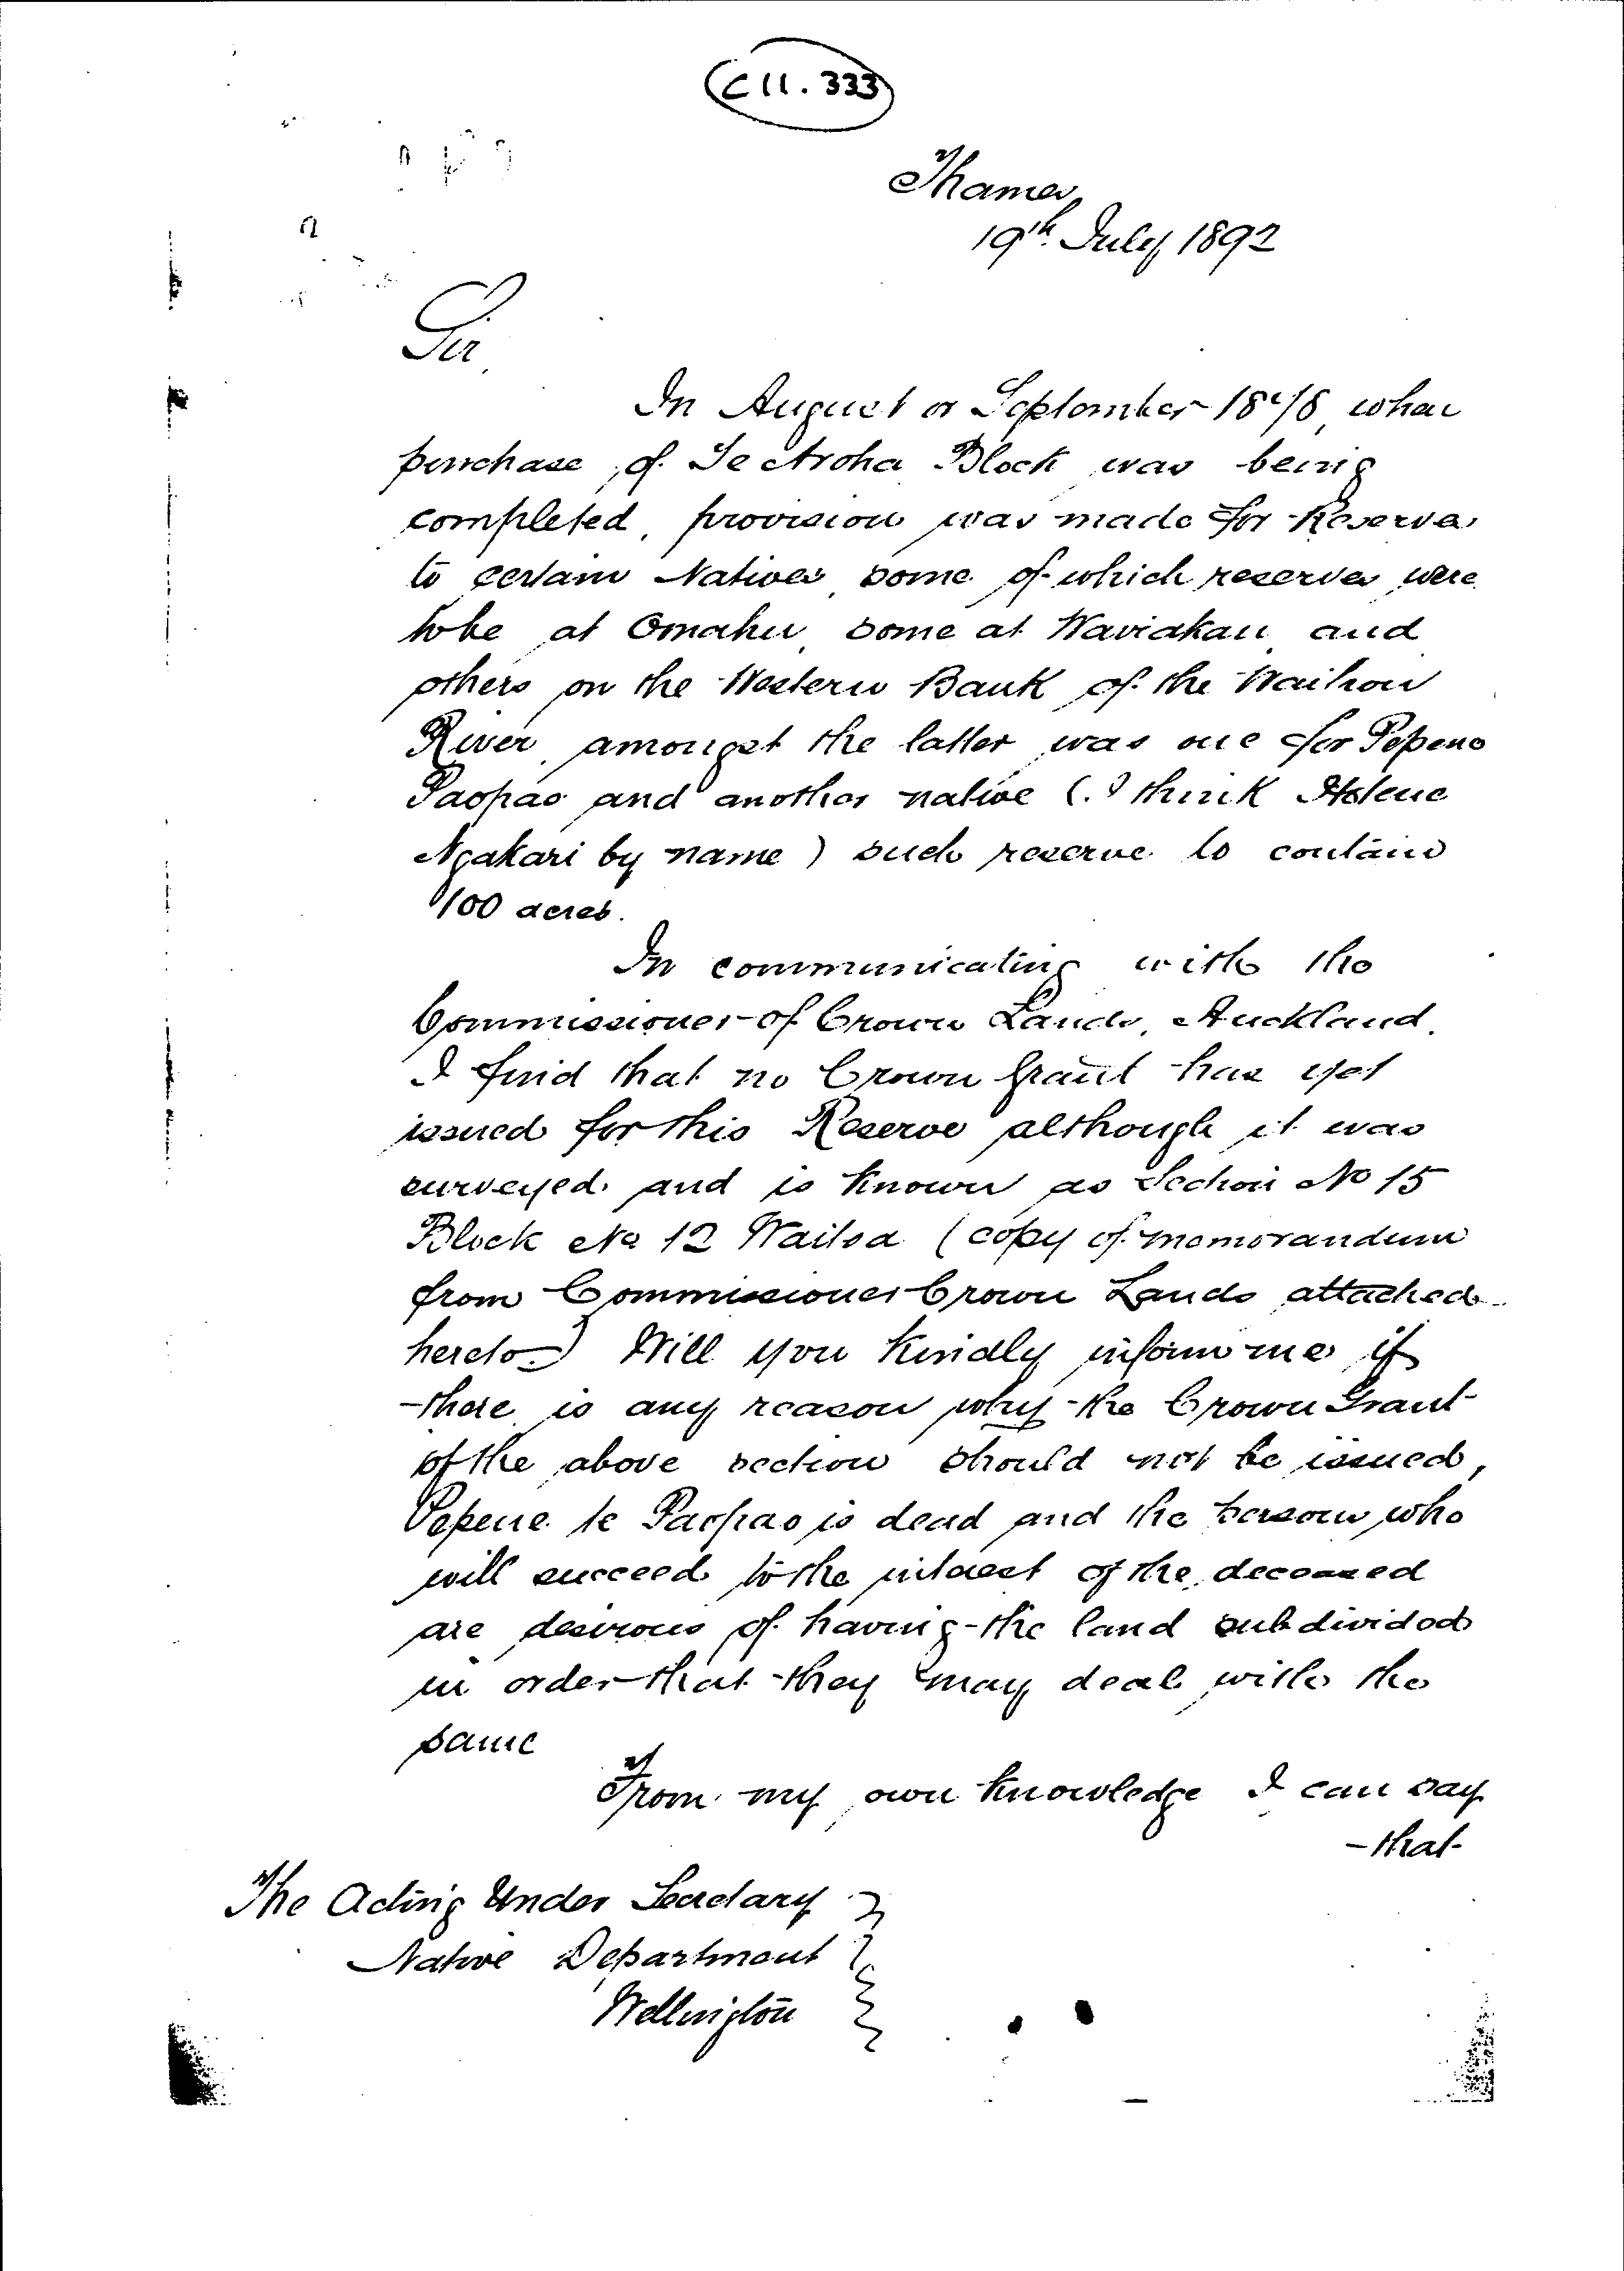 C 11. 333
Thames
19th July 1892
Sir,
In August or September 1878, when
purchase of Te Aroha Block was being
completed, provision was made for Reserves
to certain Natives some of which reserves were
to be at Omahu, some at Wairakau and
others on the Western Bank of the Waihou
River, amongst the latter was one for Pepene
Paopao and another native (I think Hotene
Ngakari by name) such reserve to contain
100 acres.
In communicating with the
Commissioner of Crown Lands, Auckland,
I find that no Crown Grant has yet
issued for this Reserve although it was
surveyed and is known as Section No 15
Block No 12 Waitoa (copy of memorandum
from Commissioner Crown Lands attached
hereto) Will you kindly inform me if
there is any reason why the Crown Grant
of the above section should not be issued,
Pepene te Paopao is dead and the persons who
will succeed to the interest of the deceased
are desirous of having the land subdivided
in order that they may deal with the
same
From my own knowledge I can say
that
The Acting Under Secretary
Native Department
Wellington